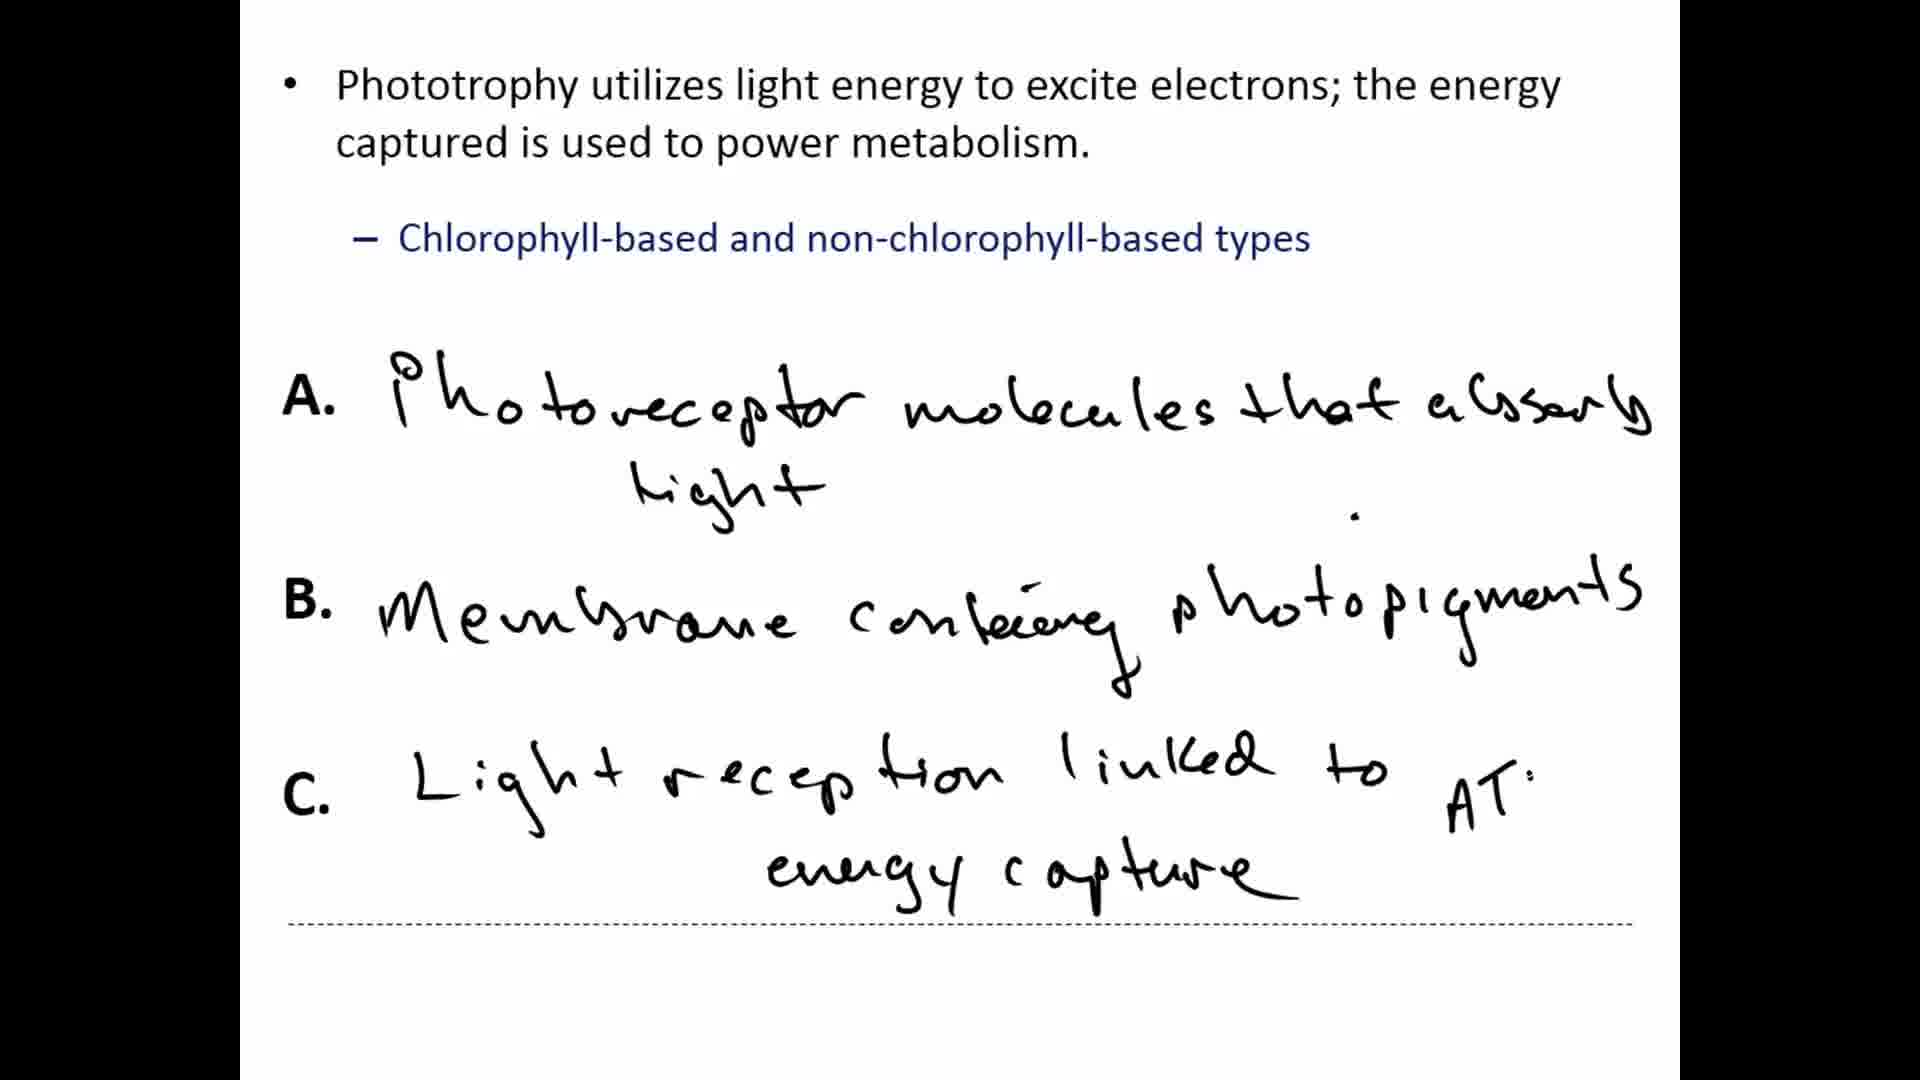 • Phototrophy utilizes light energy to excite electrons; the energy
captured is used to power metabolism.
– Chlorophyll-based and non-chlorophyll-based types
A. Photoreceptor molecules that absorb
light
B. Membrane containing photopigments
C. Light reception linked to AT
energy capture